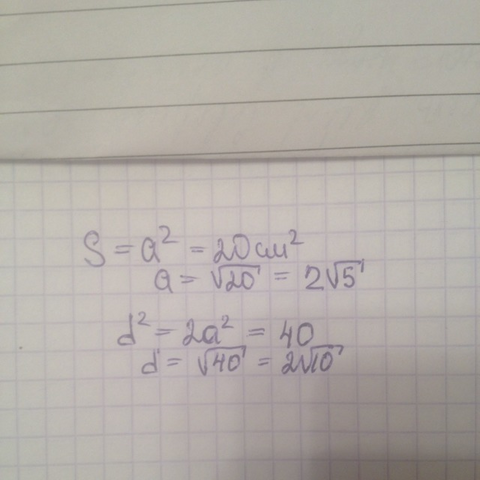 S = a² = 20 см²
a = √20 = 2√5
d² = 2a² = 40
d = √40 = 2√10